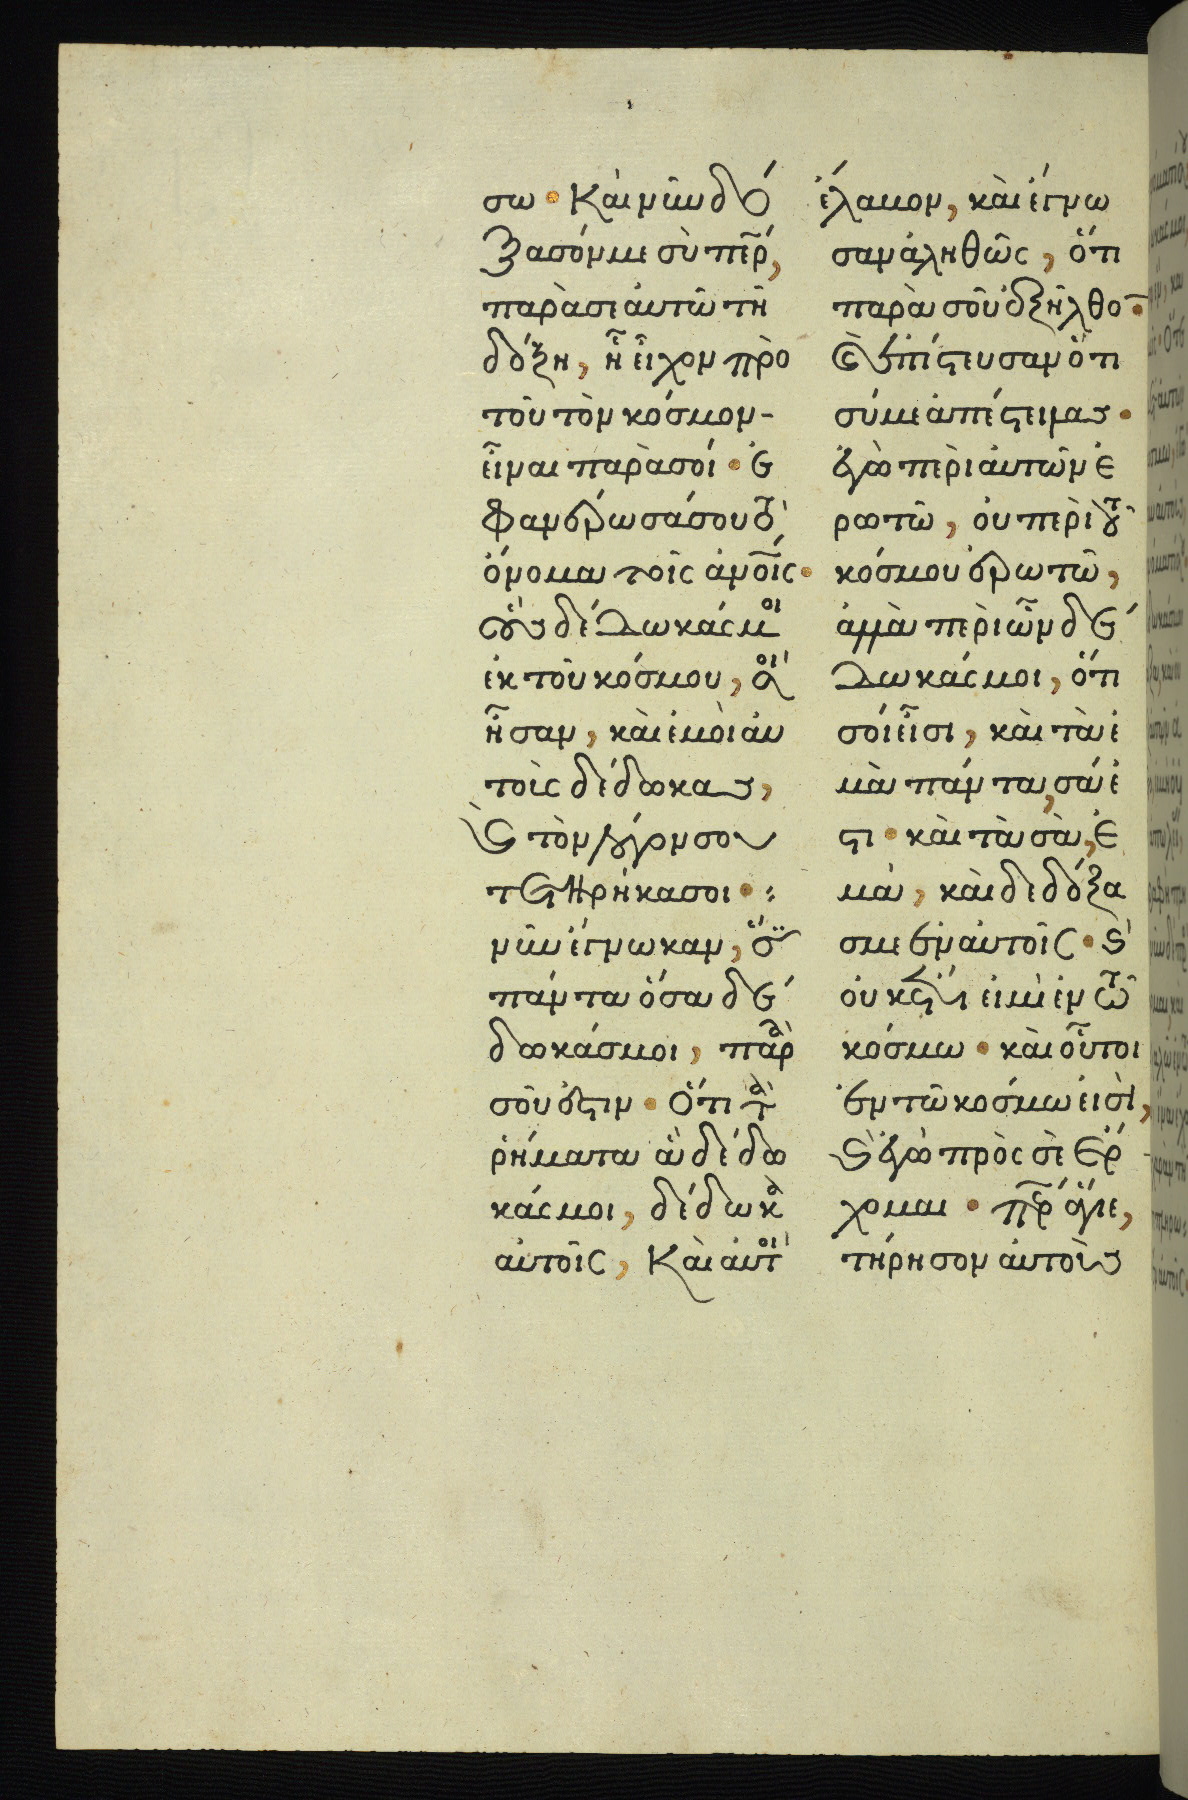 σω. Καὶ νῦν δό
ξασόν με σὺ πε̅ρ,
παρὰ σεαυτῶ τῆ
δόξη, ἧ εἶχον πρὸ
τοῦ τὸν κόσμον
εἶναι παρὰ σοί. ἐ
φανέρωσά σου τὸ
ὄνομα τοῖς ἀν̅οις.
οὓς δέδωκάς μοι
ἐκ τοῦ κόσμου, σοὶ
ἦσαν, καὶ ἐμοὶ αὐ
τοὶς δέδωκας,
καὶ τὸν λόγον σου
τετηρήκασι.
νῦν ἔγνωκαν, ὅτι
πάντα ὅσα δέ
δωκάς μοι, παρὰ
σοῦ ἐστιν. Ὅτι τὰ
ῥήματα ἃ δέδω
κάς μοι, δέδωκα
αὐτοῖς, Καὶ αὐτοὶ
ἔλαβον, καὶ ἔγνω
σαν ἀληθῶς, ὅτι
παρὰ σοῦ ἐξῆλθον.
καὶ ἐπίστευσαν ὅτι
σύ με ἀπέστειλας.
ἐγὼ περὶ αὐτῶν ἐ
ρωτῶ, οὐ περὶ τοῦ
κόσμου ἐρωτῶ,
ἀλλὰ περὶ ὧν δέ
δωκάς μοι, ὅτι
σοί εἰσι, καὶ τὰ ἐ
μὰ πάντα, σά ἐ
στι. καὶ τὰ σὰ, ἐ
μά, καὶ δεδόξα
σμε ἐν αὐτοῖς. καὶ
οὐκ ἔτι εἰμὶ ἐν τῶ
κόσμω. καὶ οὗτοι
ἐν τῶ κόσμω εἰσὶ,
καὶ ἐγὼ πρὸς σὲ ἔρ
χομαι. πε̅ρ ἅγιε,
τήρησον αὐτοὺς